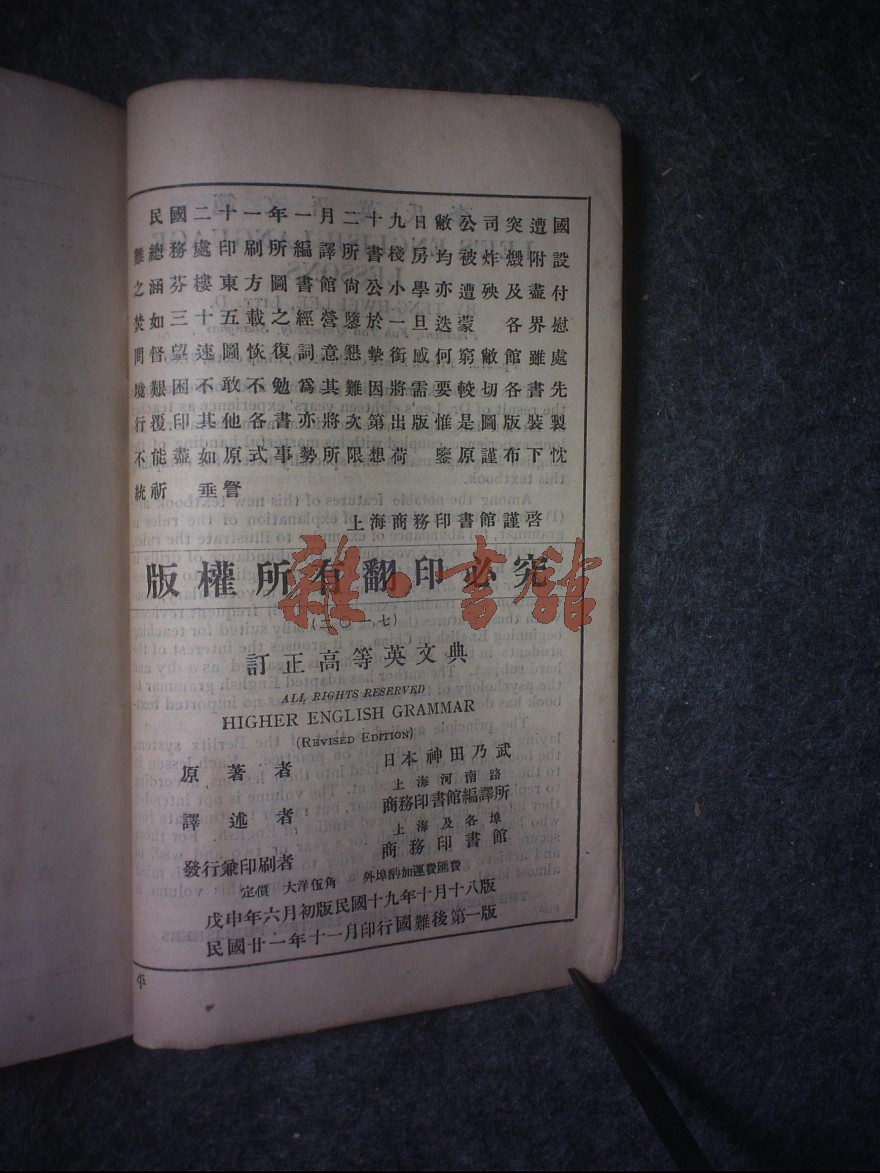 民國二十一年一月二十九日敝公司突遭國
難總務處印刷所編譯所書棧房均被炸燬附設
之涵芬樓東方圖書館尙公小學亦遭殃及盡付
焚如三十五載之經營墮於一旦迭蒙 各界慰
問督望速圖恢復詞意懇摯銜感何窮敝館雖處
境艱困不敢不勉爲其難因將需要較切各書先
行覆印其他各書亦將次第出版惟是圖版裝製
不能盡如原式事勢所限想荷 鑒原謹布下忱
統祈 垂詧
上海商務印書館謹啓
版權所有翻印必究
雜·書館
(三〇一七)
訂正高等英文典
ALL RIGHTS RESERVED
HIGHER ENGLISH GRAMMAR
(REVISED EDITION)
原著者 日本神田乃武
上海河南路
譯述者 商務印書館編譯所
上海及各埠
發行兼印刷者 商務印書館
定價 大洋伍角 外埠酌加運費匯費
戊申年六月初版民國十九年十月十八版
民國廿一年十一月印行國難後第一版